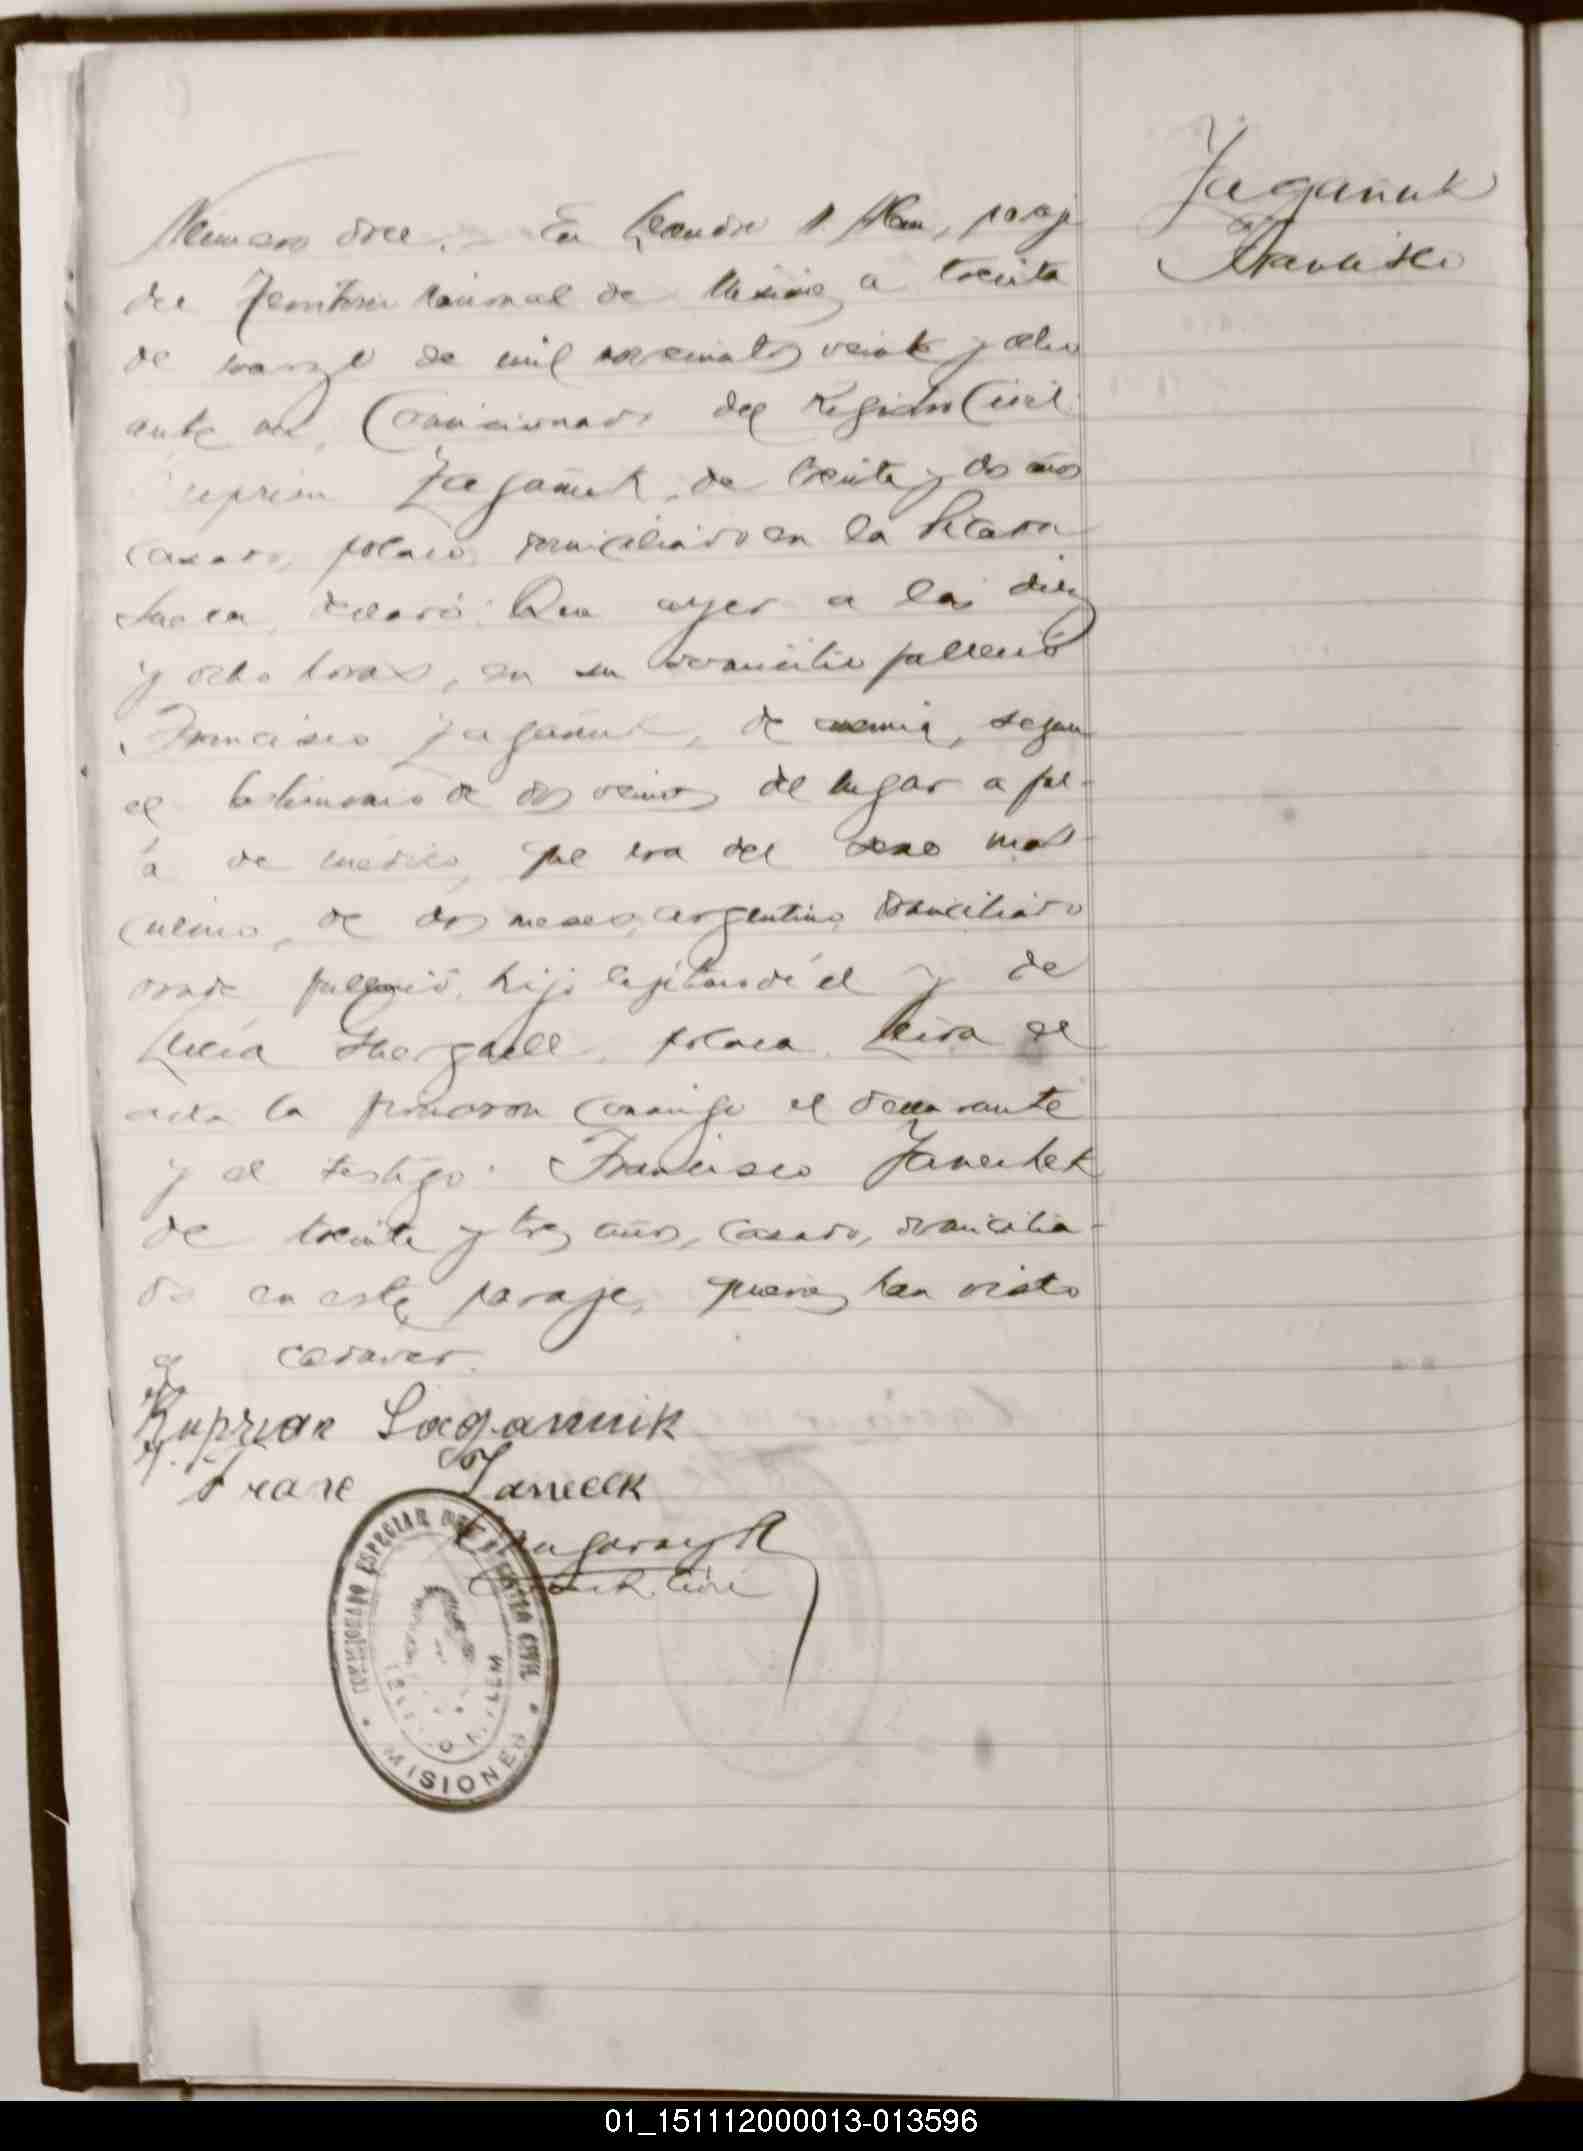 Zagañuk
Francisco
Número doce. En Leandro N. Alem, paraje
del Territorio Nacional de Misiones a treinta
de marzo de mil novecientos veinte y ocho
ante mí, Comisionado del Registro Civil
Ciprian Zagañuk, de treinta y dos años
casado, polaco, domiciliado en la Picada
declaró: Que ayer a las diez
y ocho horas, en su domicilio falleció
Francisco Zagañuk, de anemia, segun
el testimonio de dos vecinos del lugar a fal-
ta de médico, que era del sexo mas-
culino, de dos meses, argentino, domiciliado
donde falleció, hijo legítimo de él y de
Lucía polaca. Leída el
acta la firmaron conmigo el declarante
y el testigo: Francisco Janechek
de treinta y tres años, casado, domicilia-
do en este paraje, quienes han visto
el cadaver.
Kuprian Sagannik
Franc Janecek
COMISIONADO ESPECIAL DEL REGISTRO CIVIL
MISIONES
01_151112000013-013596